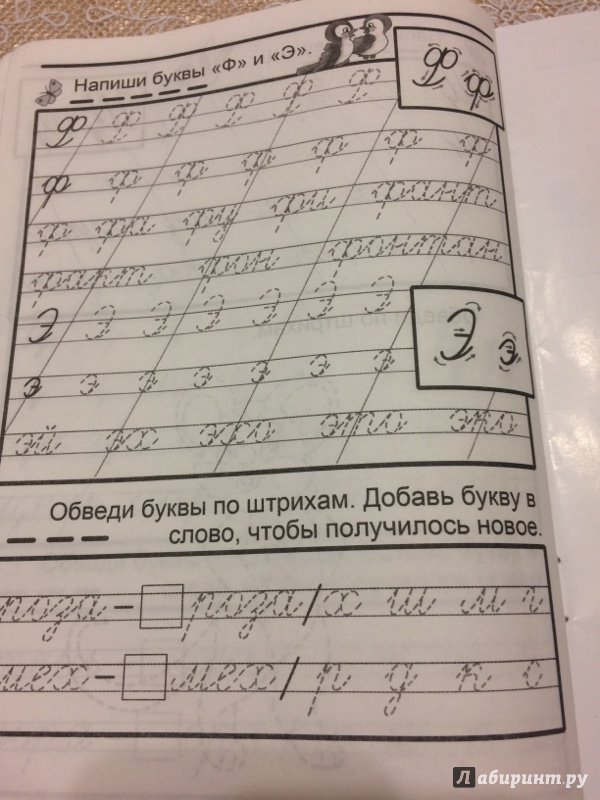 Напиши буквы «Ф» и «Э».
Ф Ф Ф Ф Ф Ф
Ф ф
ф ф ф ф ф ф ф
ф фа фу фи фант
факт фон фонтан
Э Э Э Э Э Э Э
Э э
э э э э э э э
эй эх эхо это
Обведи буквы по штрихам. Добавь букву в
слово, чтобы получилось новое.
руза – руза / х ш м г
мех – мех / р д к с
Лабиринт.ру